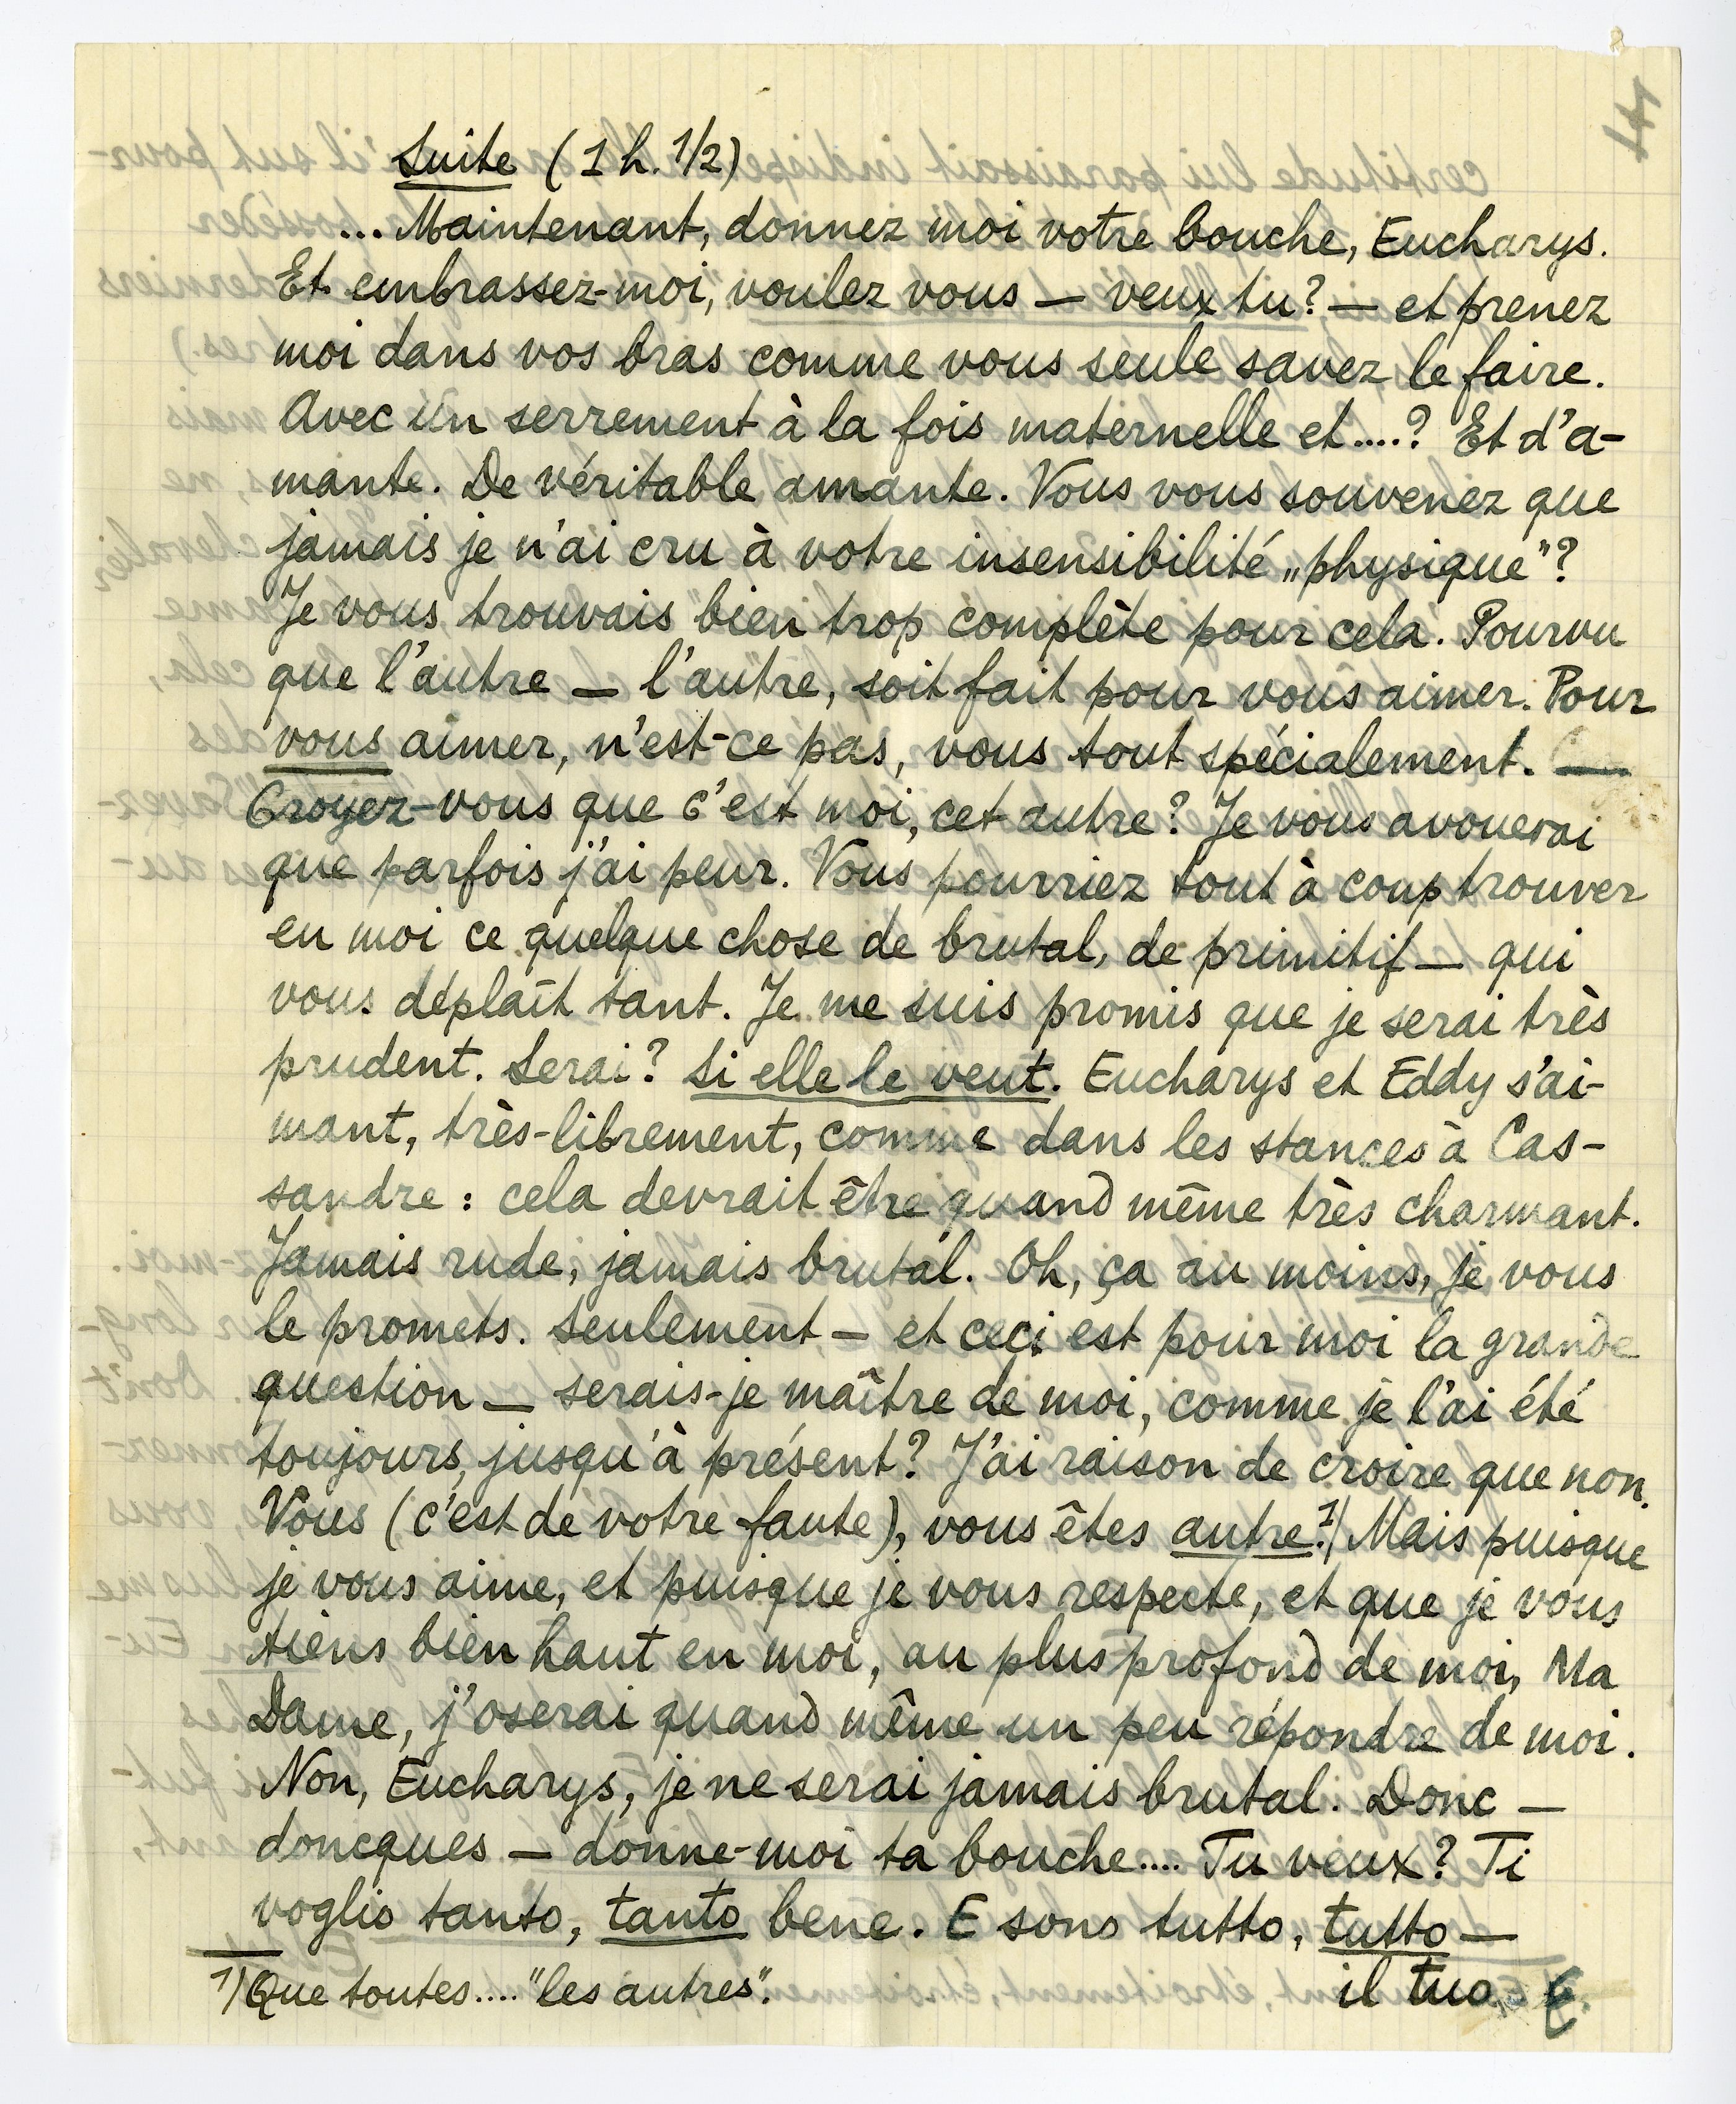 Suite (1 h. 1/2)
... Maintenant, donnez moi votre bouche, Eucharys.
Et embrassez-moi, voulez vous — veux tu? — et prenez
moi dans vos bras comme vous seule savez le faire.
Avec un serrement à la fois maternelle et....? Et d'a-
mante. De véritable amante. Vous vous souvenez que
jamais je n'ai cru à votre insensibilité „physique"?
Je vous trouvais bien trop complète pour cela. Pourvu
que l'autre — l'autre, soit fait pour vous aimer. Pour
vous aimer, n'est-ce pas, vous tout spécialement. —
Croyez-vous que c'est moi, cet autre? Je vous avouerai
que parfois j'ai peur. Vous pourriez tout à coup trouver
en moi ce quelque chose de brutal, de primitif — qui
vous déplaît tant. Je me suis promis que je serai très
prudent. Serai? Si elle le veut. Eucharys et Eddy s'ai-
mant, très-librement, comme dans les stances à Cas-
sandre : cela devrait être quand même très charmant.
Jamais rude, jamais brutal. Oh, ça au moins, je vous
le promets. Seulement — et ceci est pour moi la grande
question — serais-je maître de moi, comme je l'ai été
toujours, jusqu'à présent? J'ai raison de croire que non.
Vous (c'est de votre faute), vous êtes autre.1) Mais puisque
je vous aime, et puisque je vous respecte, et que je vous
tiens bien haut en moi, au plus profond de moi, Ma
Dame, j'oserai quand même un peu répondre de moi.
Non, Eucharys, je ne serai jamais brutal. Donc —
doncques — donne-moi ta bouche.... Tu veux? Ti
voglio tanto, tanto bene. E sono tutto, tutto —
il tuo E.
1) Que toutes.... "les autres".